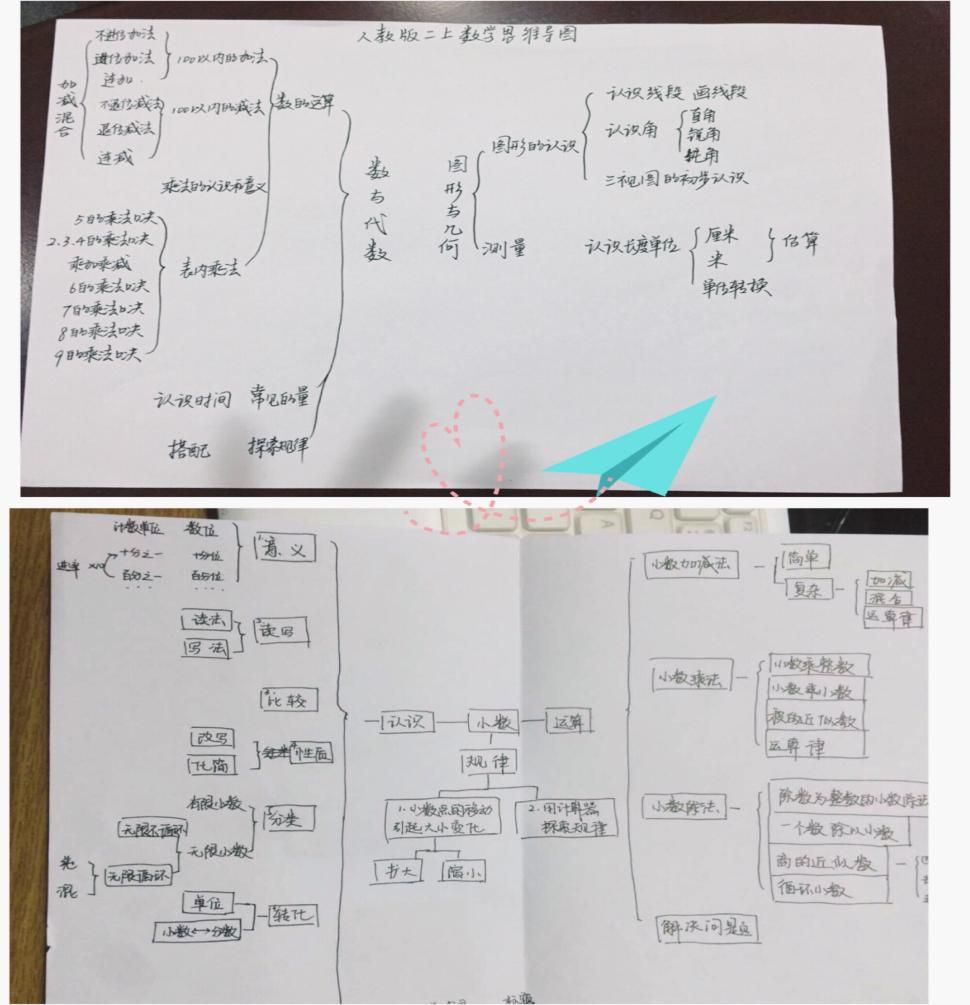 人教版二上数学思维导图
不进位加法
进位加法
连加
100以内的加法
加减混合
不退位减法
退位减法
连减
100以内的减法
数的运算
乘法的认识和意义
5的乘法口决
2.3.4的乘法口决
乘加乘减
6的乘法口决
7的乘法口决
8的乘法口决
9的乘法口决
表内乘法
认识时间 常见的量
搭配 探索规律
数与代数
图形与几何
图形的认识
认识线段 画线段
认识角
直角
锐角
钝角
三视图的初步认识
测量
认识长度单位
厘米
米
单位转换
估算
计数单位 数位
进率 ×10
十分之一 十分位
百分之一 百分位
... ...
1.意义
读法
写法
读写
比较
改写
化简
性质
有限小数
无限不循环
无限小数
分类
无限循环
纯
混
单位
小数↔分数
转化
认识
小数
运算
规律
1.小数点的移动
引起大小变化
2.用计算器
探索规律
扩大
缩小
小数加减法
简单
复杂
加减
混合
运算律
小数乘法
小数乘整数
小数乘小数
积的近似数
运算律
小数除法
除数为整数的小数除法
一个数除以小数
商的近似数
循环小数
解决问题